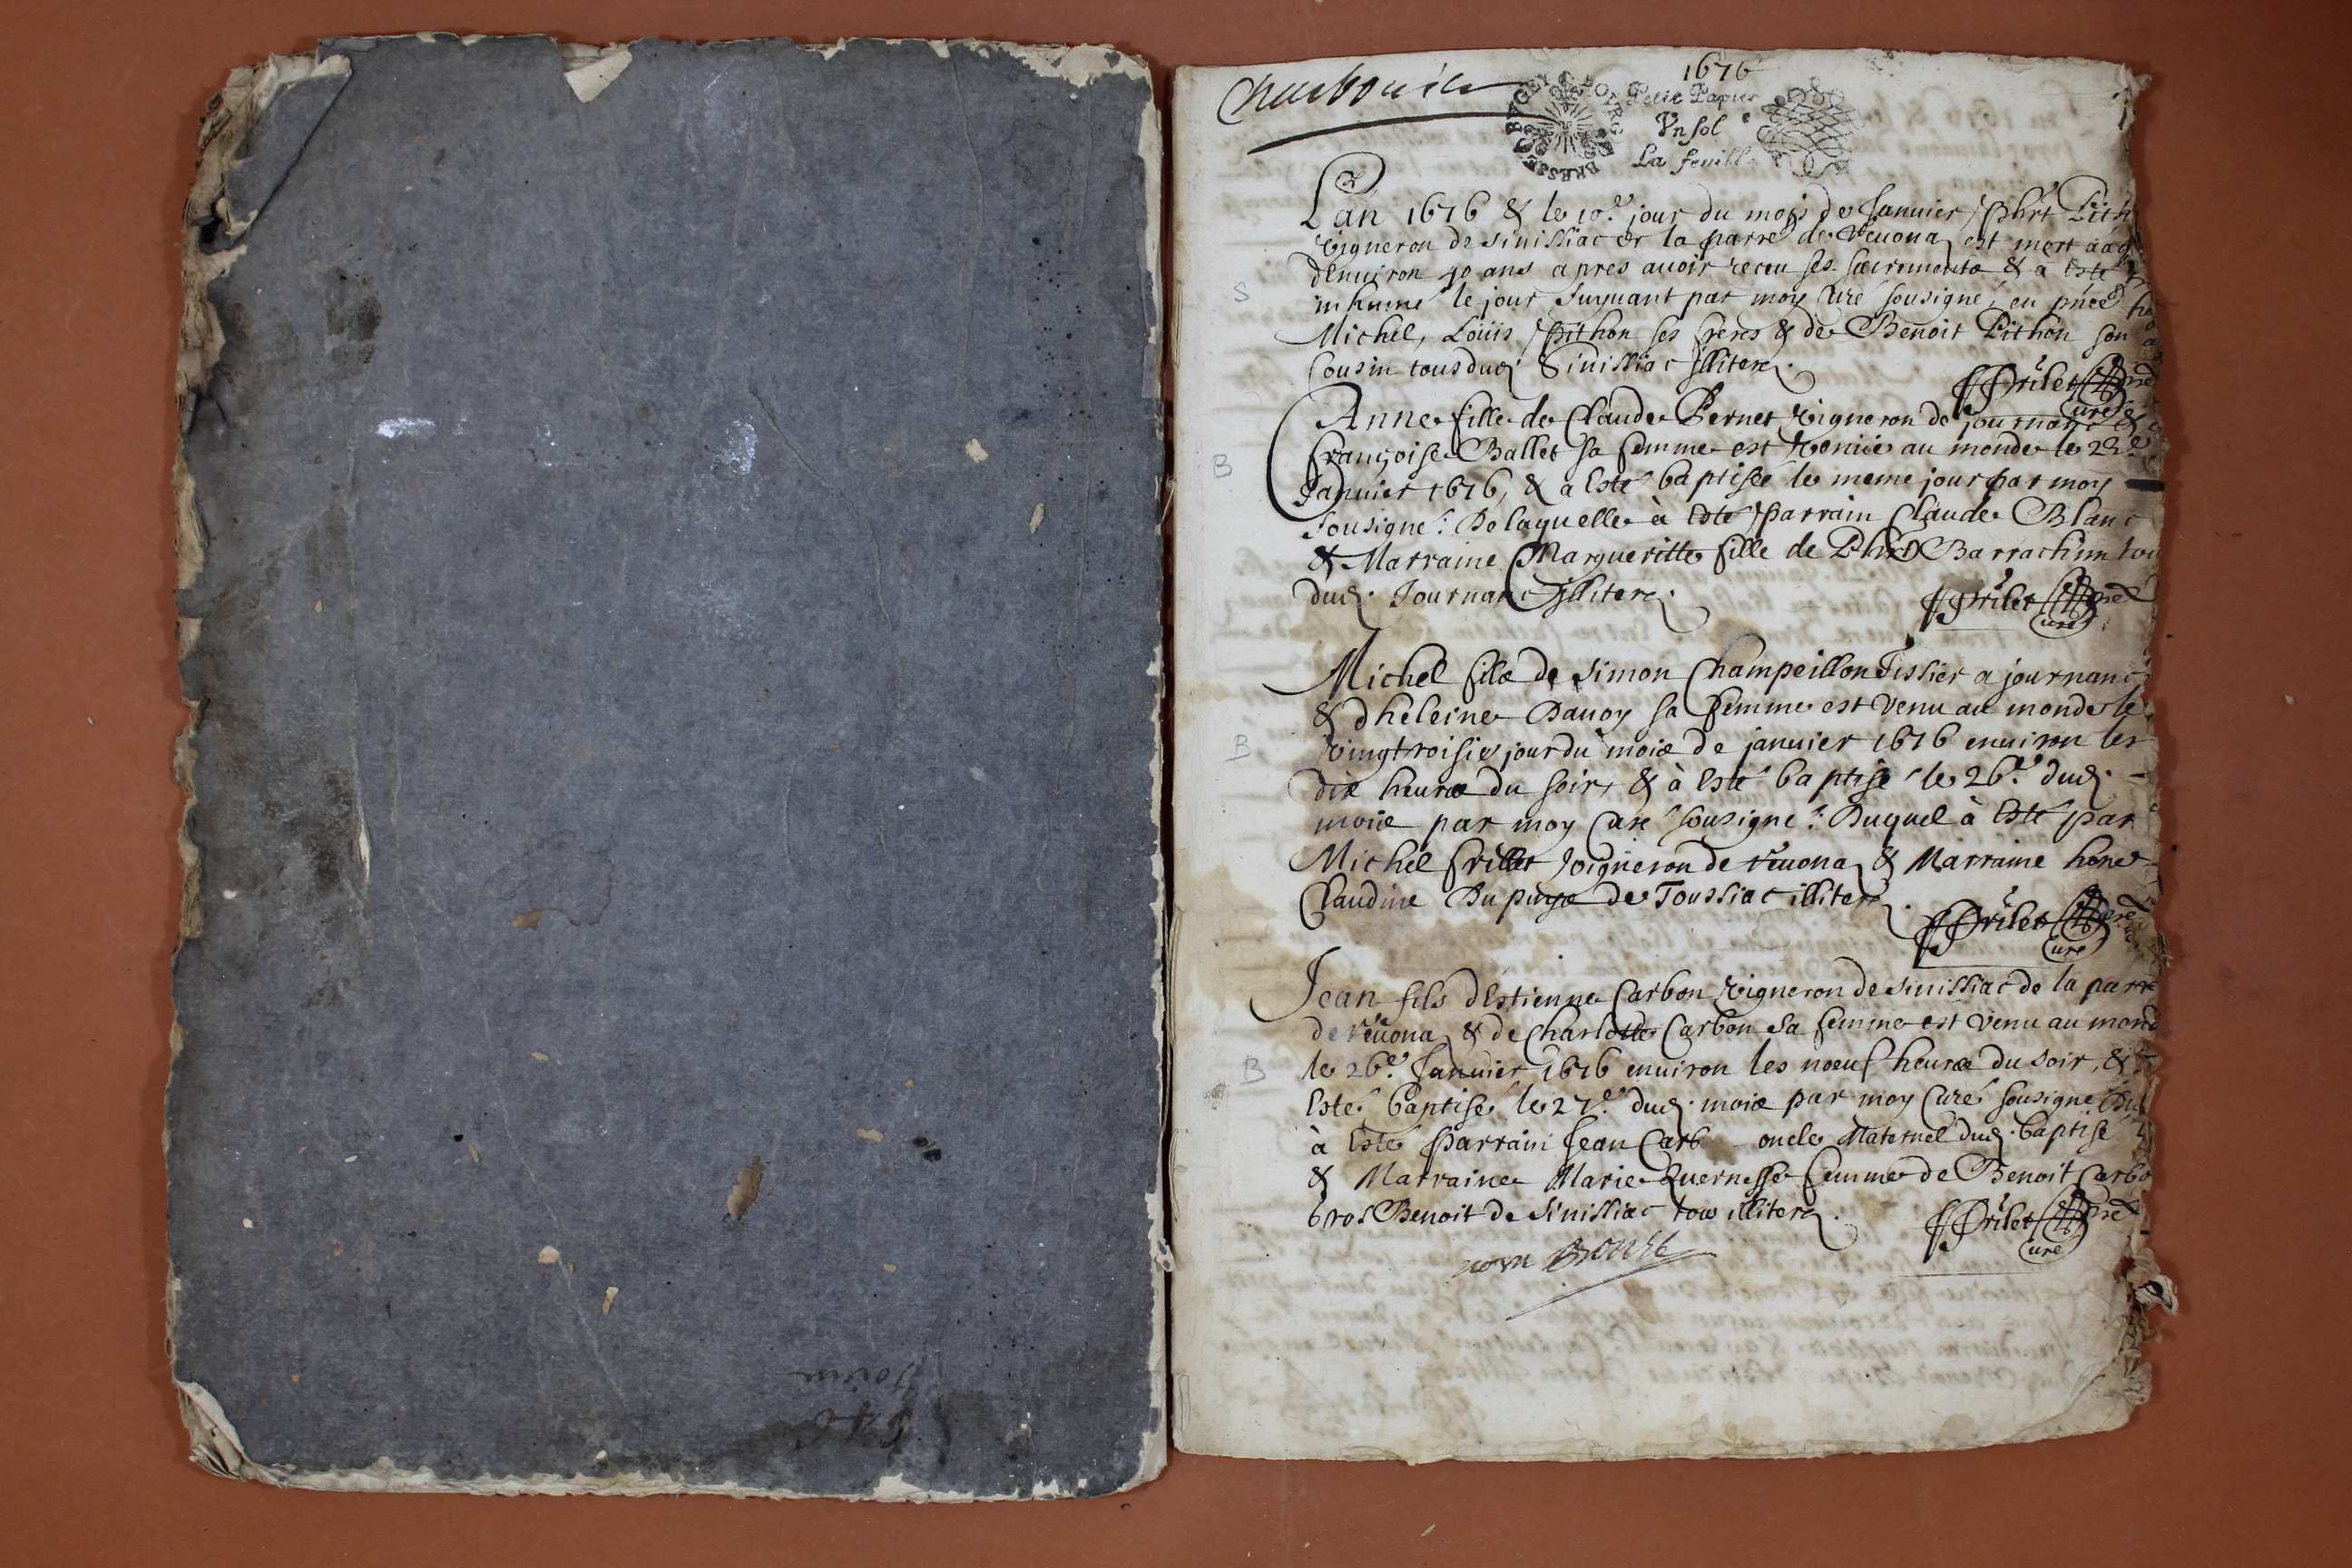 1676
BRESSE BVGEY BOVRG
Petit Papier
Vn sol
La feuille
L'an 1676 & le 10.e jour du mois de Januier, phrt Pith
vigneron de sinissiac de la parre de reuona est mort aag
denuiron 40 ans apres auoir receu ses sacrements & à esté
inhumé le jour suyuant par moy Curé sousigné, en pñce
S
Michel, Loüis pithon ses freres & de Benoit Pithon son
Cousin tous dud Sinissiac illiterez.
Cure
Anne fille de Claude Pernet vigneron de journanc &
françoise Ballet sa femme est venüe au monde le 22e
B
Januier 1676, & a esté baptisée le meme jour par moy
sousigné: De laquelle à esté parrain Claude Blanc
& Marraine Margueritte fille de Phrt Barrachim tou
dud. Journanc illiterez.
Curé
Michel fils de Simon Champeillon Tissier a journanc
& dheleine Dauoy sa femme est venu au monde le
B
vingtroisie jour du mois de januier 1676 enuiron les
dix heures du soir, & à esté baptisé le 26.e dud.
mois par moy Curé sousigné: Duquel à esté par
Michel frillet vigneron de reuona & Marraine hone
Claudine Dupuys de Toussiac illiterez.
Curé
Jean fils d'Estienne Carbon vigneron de sinissiac de la parre
de reuona & de Charlotte Carbon sa femme est venu au mond
B
le 26.e Januier 1676 enuiron les noeuf heures du soir, &
Esté baptisé le 27.e dud. mois par moy Curé sousigné Du
à esté parrain Jean Carb oncle Maternel dud. baptisé
& Marraine Marie Quernesse femme de Benoit Carbo
Gros Benoit de Sinissiac tous illiterez.
Curé